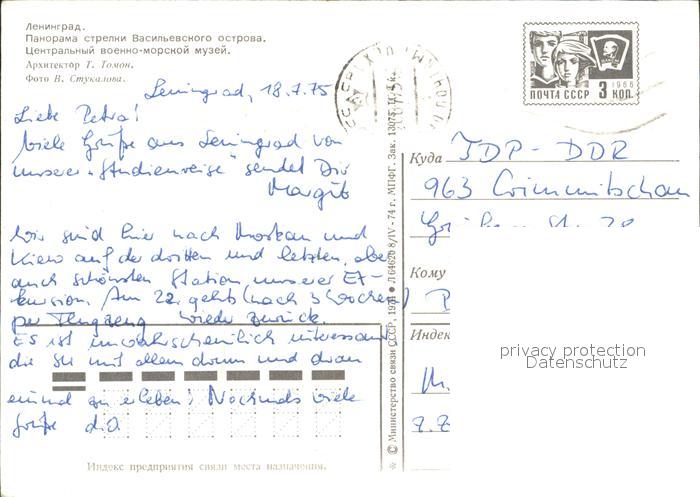 Ленинград.
Панорама стрелки Васильевского острова.
Центральный военно-морской музей.
Архитектор Т. Томон.
Фото В. Стукалова.
Leningrad, 18.7.75
Liebe Petra!
Viele Grüße aus Leningrad von
unserer „Studienreise" sendet Dir
Margit
Wir sind hier nach Moskau und
Kiew auf der dritten und letzten, aber
auch schönsten Station unserer Ex-
kursion. Am 22. gehts (nach 3 Wochen)
per Flugzeug wieder zurück.
Es ist unwahrscheinlich interessant
die SU mit allem drum und dran
einmal zu erleben! Nochmals viele
Grüße d.O.
Индекс предприятия связи места назначения.
© Министерство связи СССР. 1974 ● Л 64620 8/IV-74 г. МПФГ. Зак. 13075. Ц. 4 к.
1966
ВЛКСМ
ПОЧТА СССР 3 КОП.
Куда ГДР - DDR
963 Crimmitschau
Кому
P
Индек
M.
privacy protection
Datenschutz